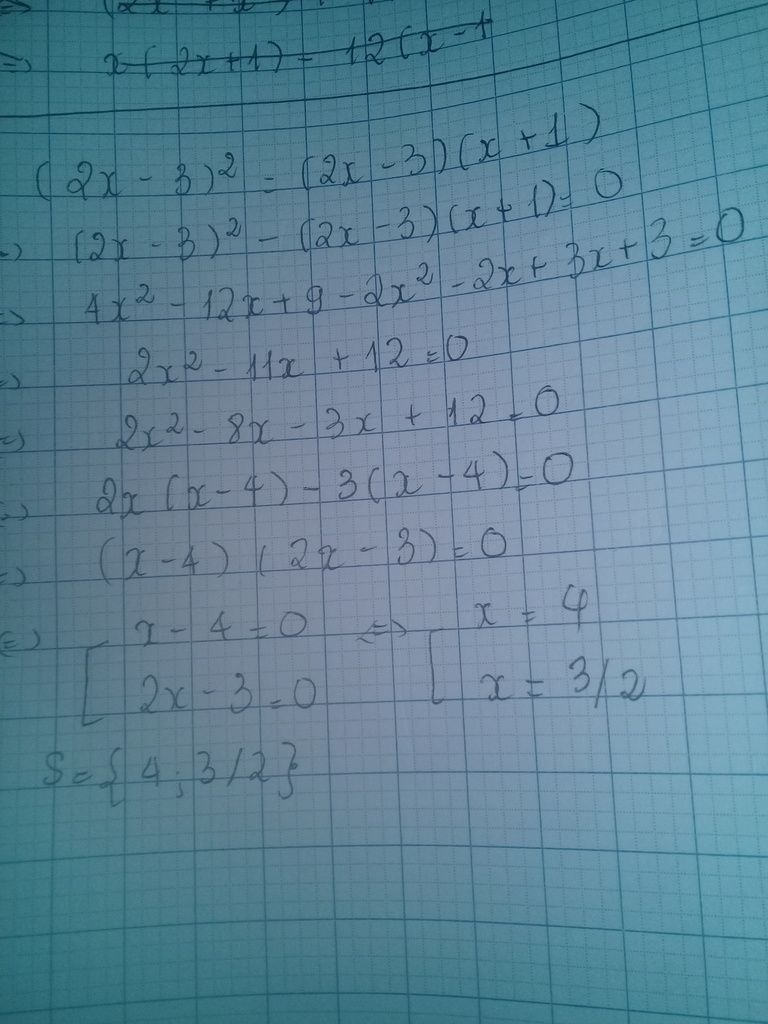 x(2x+1) - 12(x-1
(2x - 3)² = (2x - 3)(x + 1)
(2x - 3)² - (2x - 3)(x + 1) = 0
=> 4x² - 12x + 9 - 2x² - 2x + 3x + 3 = 0
=> 2x² - 11x + 12 = 0
=> 2x² - 8x - 3x + 12 = 0
=> 2x (x - 4) - 3(x - 4) = 0
=> (x - 4) (2x - 3) = 0
<=> [ x - 4 = 0 <=> [ x = 4
2x - 3 = 0 x = 3/2
S = { 4 ; 3/2 }